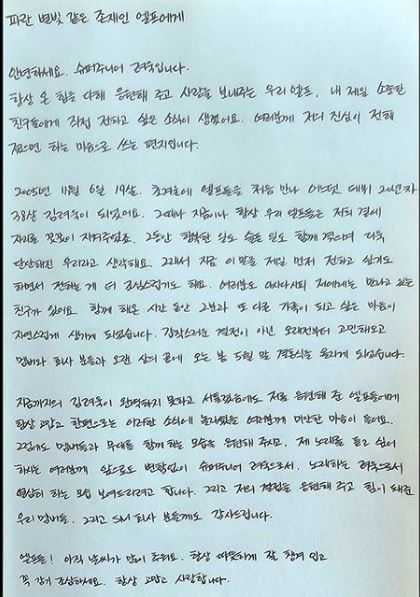 파란 별빛 같은 존재인 엘프에게
안녕하세요. 슈퍼주니어 려욱입니다.
항상 온 힘을 다해 응원해 주고 사랑을 보내주는 우리 엘프, 내 제일 소중한
친구들에게 직접 전하고 싶은 소식이 생겼어요. 여러분께 저의 진심이 전해
졌으면 하는 마음으로 쓰는 편지입니다.
2005년 11월 6일 19살. 초겨울에 엘프들을 처음 만나 어느덧 데뷔 20년차
38살 김려욱이 되었어요. 그때나 지금이나 항상 우리 엘프들은 저의 곁에
자리를 꿋꿋이 지켜주었죠. 그동안 행복한 일도 슬픈 일도 함께 겪으며 더욱
단단해진 우리라고 생각해요. 그래서 지금 이 말을 제일 먼저 전하고 싶기도
하면서 전하는 게 더 조심스럽기도 해요. 여러분도 아시다시피 저에게는 만나고 있는
친구가 있어요. 함께 해온 시간 동안 그분과 또 다른 가족이 되고 싶은 마음이
자연스럽게 생기게 되었습니다. 갑작스러운 결정이 아닌 오래전부터 고민해오고
멤버와 회사 분들과 오랜 상의 끝에 오는 봄 5월 말 결혼식을 올리게 되었습니다.
지금까지의 김려욱이 완벽하지 못하고 서툴렀음에도 저를 응원해 준 엘프들에게
항상 고맙고 한편으로는 이러한 소식에 놀라셨을 여러분께 미안한 마음이 들어요.
그럼에도 멤버들과 무대를 함께 하는 모습을 응원해 주시고, 제 노래를 듣고 싶어
하시는 여러분께 앞으로도 변함없이 슈퍼주니어 려욱으로서, 노래하는 려욱으로서
열심히 하는 모습 보여드리려고 합니다. 그리고 저의 결정을 응원해 주고 힘이 돼준
우리 멤버들, 그리고 SM 회사 분들께도 감사드립니다.
엘프들! 아직 날씨가 많이 추워요. 항상 따뜻하게 잘 챙겨 입고
꼭 감기 조심하세요. 항상 고맙고 사랑합니다.